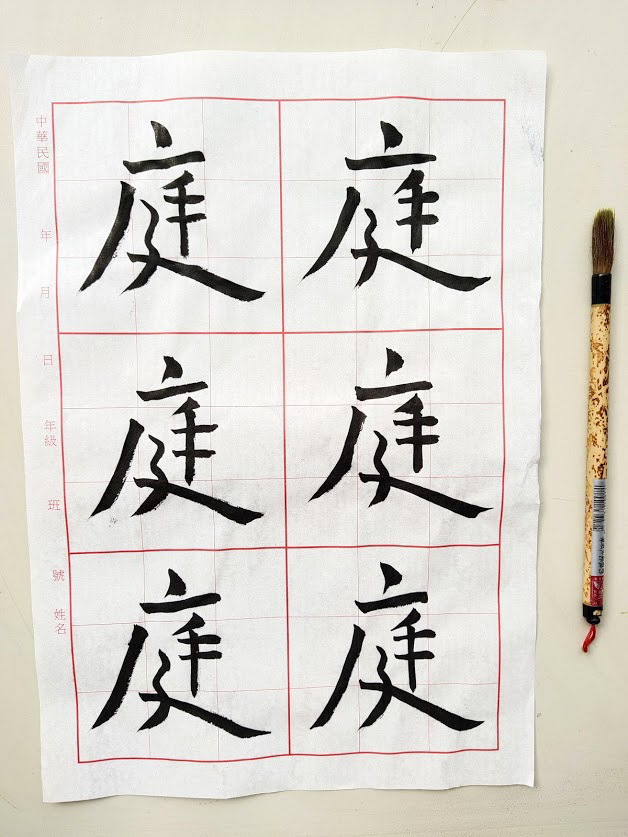 中華民國 年 月 日 年級 班 號 姓名
庭 庭
庭 庭
庭 庭